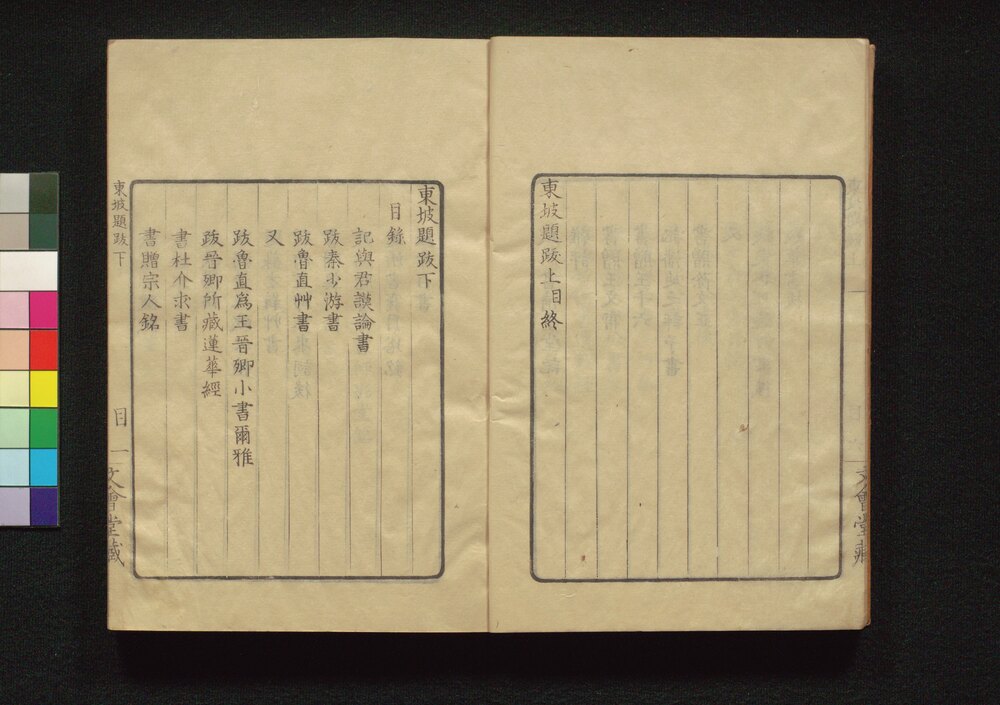 東坡題跋上目終
文會堂藏
東坡題跋下
目錄
記與君謨論書
跋秦少游書
跋魯直艸書
又
跋魯直為王晉卿小書爾雅
跋晉卿所藏蓮華經
書杜介求書
書贈宗人鎔
東坡題跋下
目
一
文會堂藏